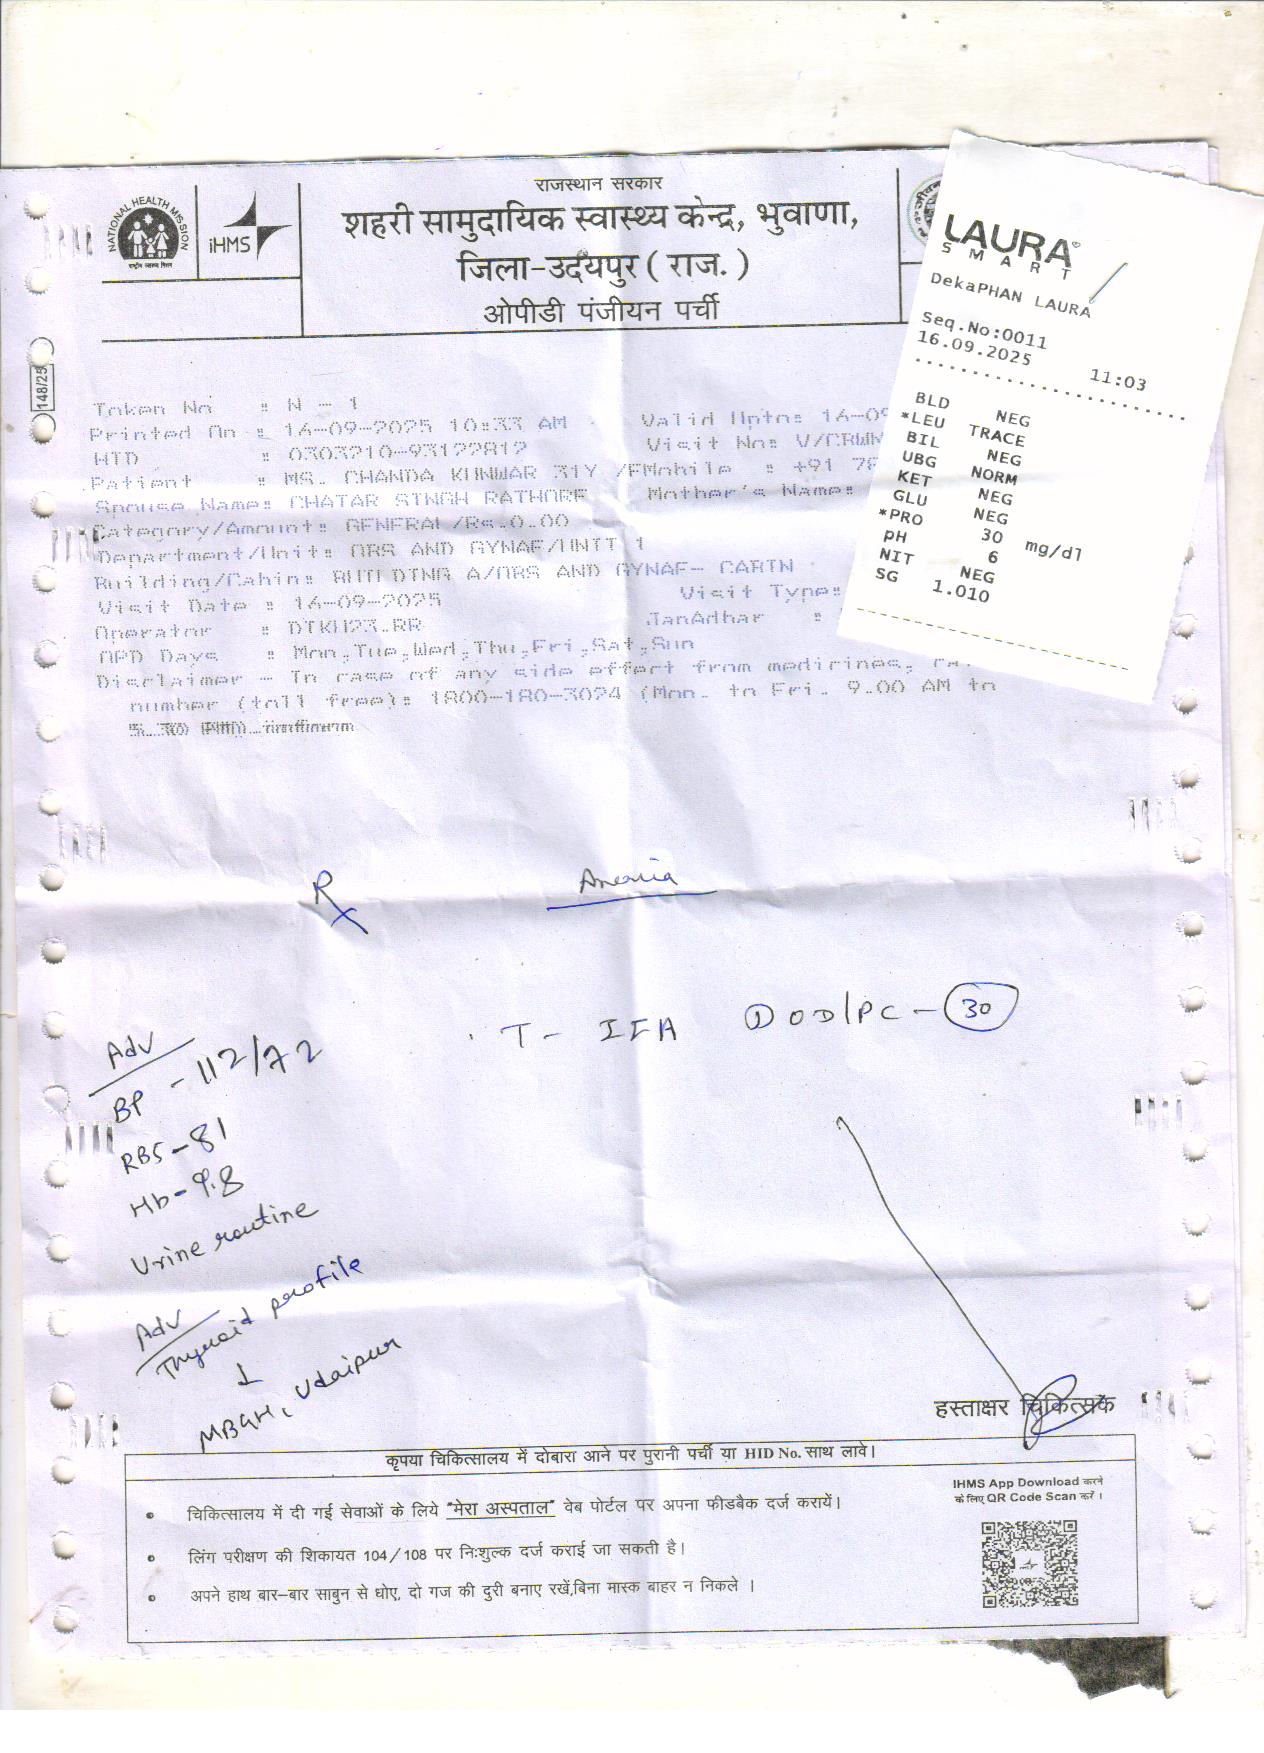 राजस्थान सरकार
शहरी सामुदायिक स्वास्थ्य केन्द्र, भुवाणा,
जिला-उदयपुर ( राज. )
ओपीडी पंजीयन पर्ची
NATIONAL HEALTH MISSION
राष्ट्रीय स्वास्थ्य मिशन
iHMS
148/25
LAURA
SMART
DekaPHAN LAURA
Seq.No:0011
16.09.2025 11:03
BLD NEG
*LEU TRACE
BIL NEG
UBG NORM
KET NEG
GLU NEG
*PRO 30 mg/dl
pH 6
NIT NEG
SG 1.010
Token No : N - 1
Printed On : 16-09-2025 10:33 AM Valid Upto: 16-09
HID : 0303210-93122812 Visit No: V/CRWN
Patient : MS. CHANDA KUNWAR 31Y /F Mobile : +91 78
Spouse Name: CHATAR SINGH RATHORE Mother's Name:
Category/Amount: GENERAL/Rs.0.00
Department/Unit: OBS AND GYNAE/UNIT 1
Building/Cabin: BUILDING A/OBS AND GYNAE- CABIN
Visit Date : 16-09-2025 Visit Type:
Operator : DIKH23.BR JanAdhar :
OPD Days : Mon,Tue,Wed,Thu,Fri,Sat,Sun
Disclaimer - In case of any side effect from medicines,
number (toll free): 1800-180-3024 (Mon. to Fri. 9.00 AM to
5.30 PM)
Rx
T- IFA ① OD/PC - 30
Adv
BP - 112/72
RBS - 81
Hb - 9.8
Urine routine
Adv
Thyroid profile
↓
MBGH, Udaipur
हस्ताक्षर चिकित्सक
कृपया चिकित्सालय में दोबारा आने पर पुरानी पर्ची या HID No. साथ लावे।
• चिकित्सालय में दी गई सेवाओं के लिये "मेरा अस्पताल" वेब पोर्टल पर अपना फीडबैक दर्ज करायें।
• लिंग परीक्षण की शिकायत 104/108 पर निःशुल्क दर्ज कराई जा सकती है।
• अपने हाथ बार-बार साबुन से धोए, दो गज की दुरी बनाए रखें,बिना मास्क बाहर न निकले ।
IHMS App Download करने
के लिए QR Code Scan करें ।